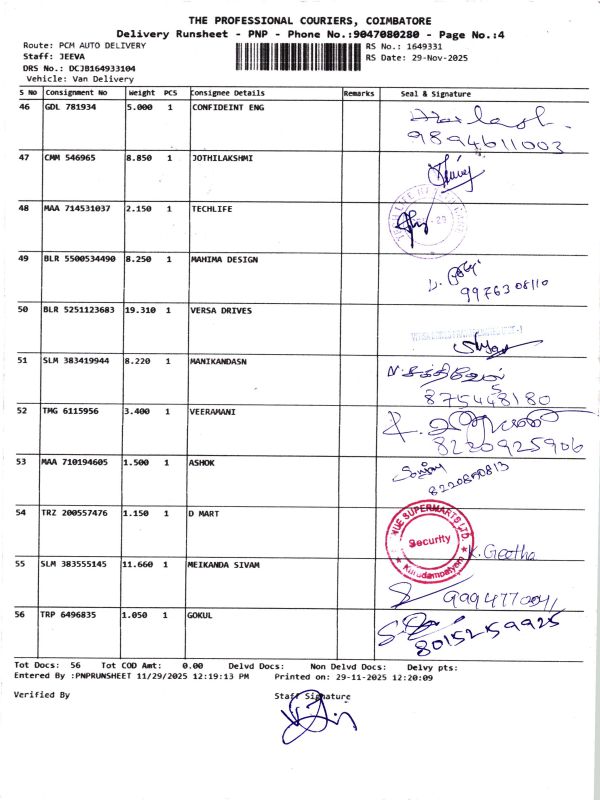 THE PROFESSIONAL COURIERS, COIMBATORE
Delivery Runsheet - PNP - Phone No.:9047080280 - Page No.:4
Route: PCM AUTO DELIVERY
RS No.: 1649331
Staff: JEEVA
RS Date: 29-Nov-2025
DRS No.: DCJB164933104
Vehicle: Van Delivery
S No Consignment No Weight PCS Consignee Details Remarks Seal & Signature
46 GDL 781934 5.000 1 CONFIDEINT ENG
9894611003
47 CMM 546965 8.850 1 JOTHILAKSHMI
48 MAA 714531037 2.150 1 TECHLIFE
49 BLR 5500534490 8.250 1 MAHIMA DESIGN
9976308110
50 BLR 5251123683 19.310 1 VERSA DRIVES
51 SLM 383419944 8.220 1 MANIKANDASN
N. சக்திவேல்
875448180
52 TMG 6115956 3.400 1 VEERAMANI
8220925906
53 MAA 710194605 1.500 1 ASHOK
Sanjay
54 TRZ 200557476 1.150 1 D MART
SUPERMARTS LTD
Security
K. Geetha
55 SLM 383555145 11.660 1 MEIKANDA SIVAM
9994770041
56 TRP 6496835 1.050 1 GOKUL
8015259925
Tot Docs: 56 Tot COD Amt: 0.00 Delvd Docs: Non Delvd Docs: Delvy pts:
Entered By :PNPRUNSHEET 11/29/2025 12:19:13 PM Printed on: 29-11-2025 12:20:09
Verified By Staff Signature